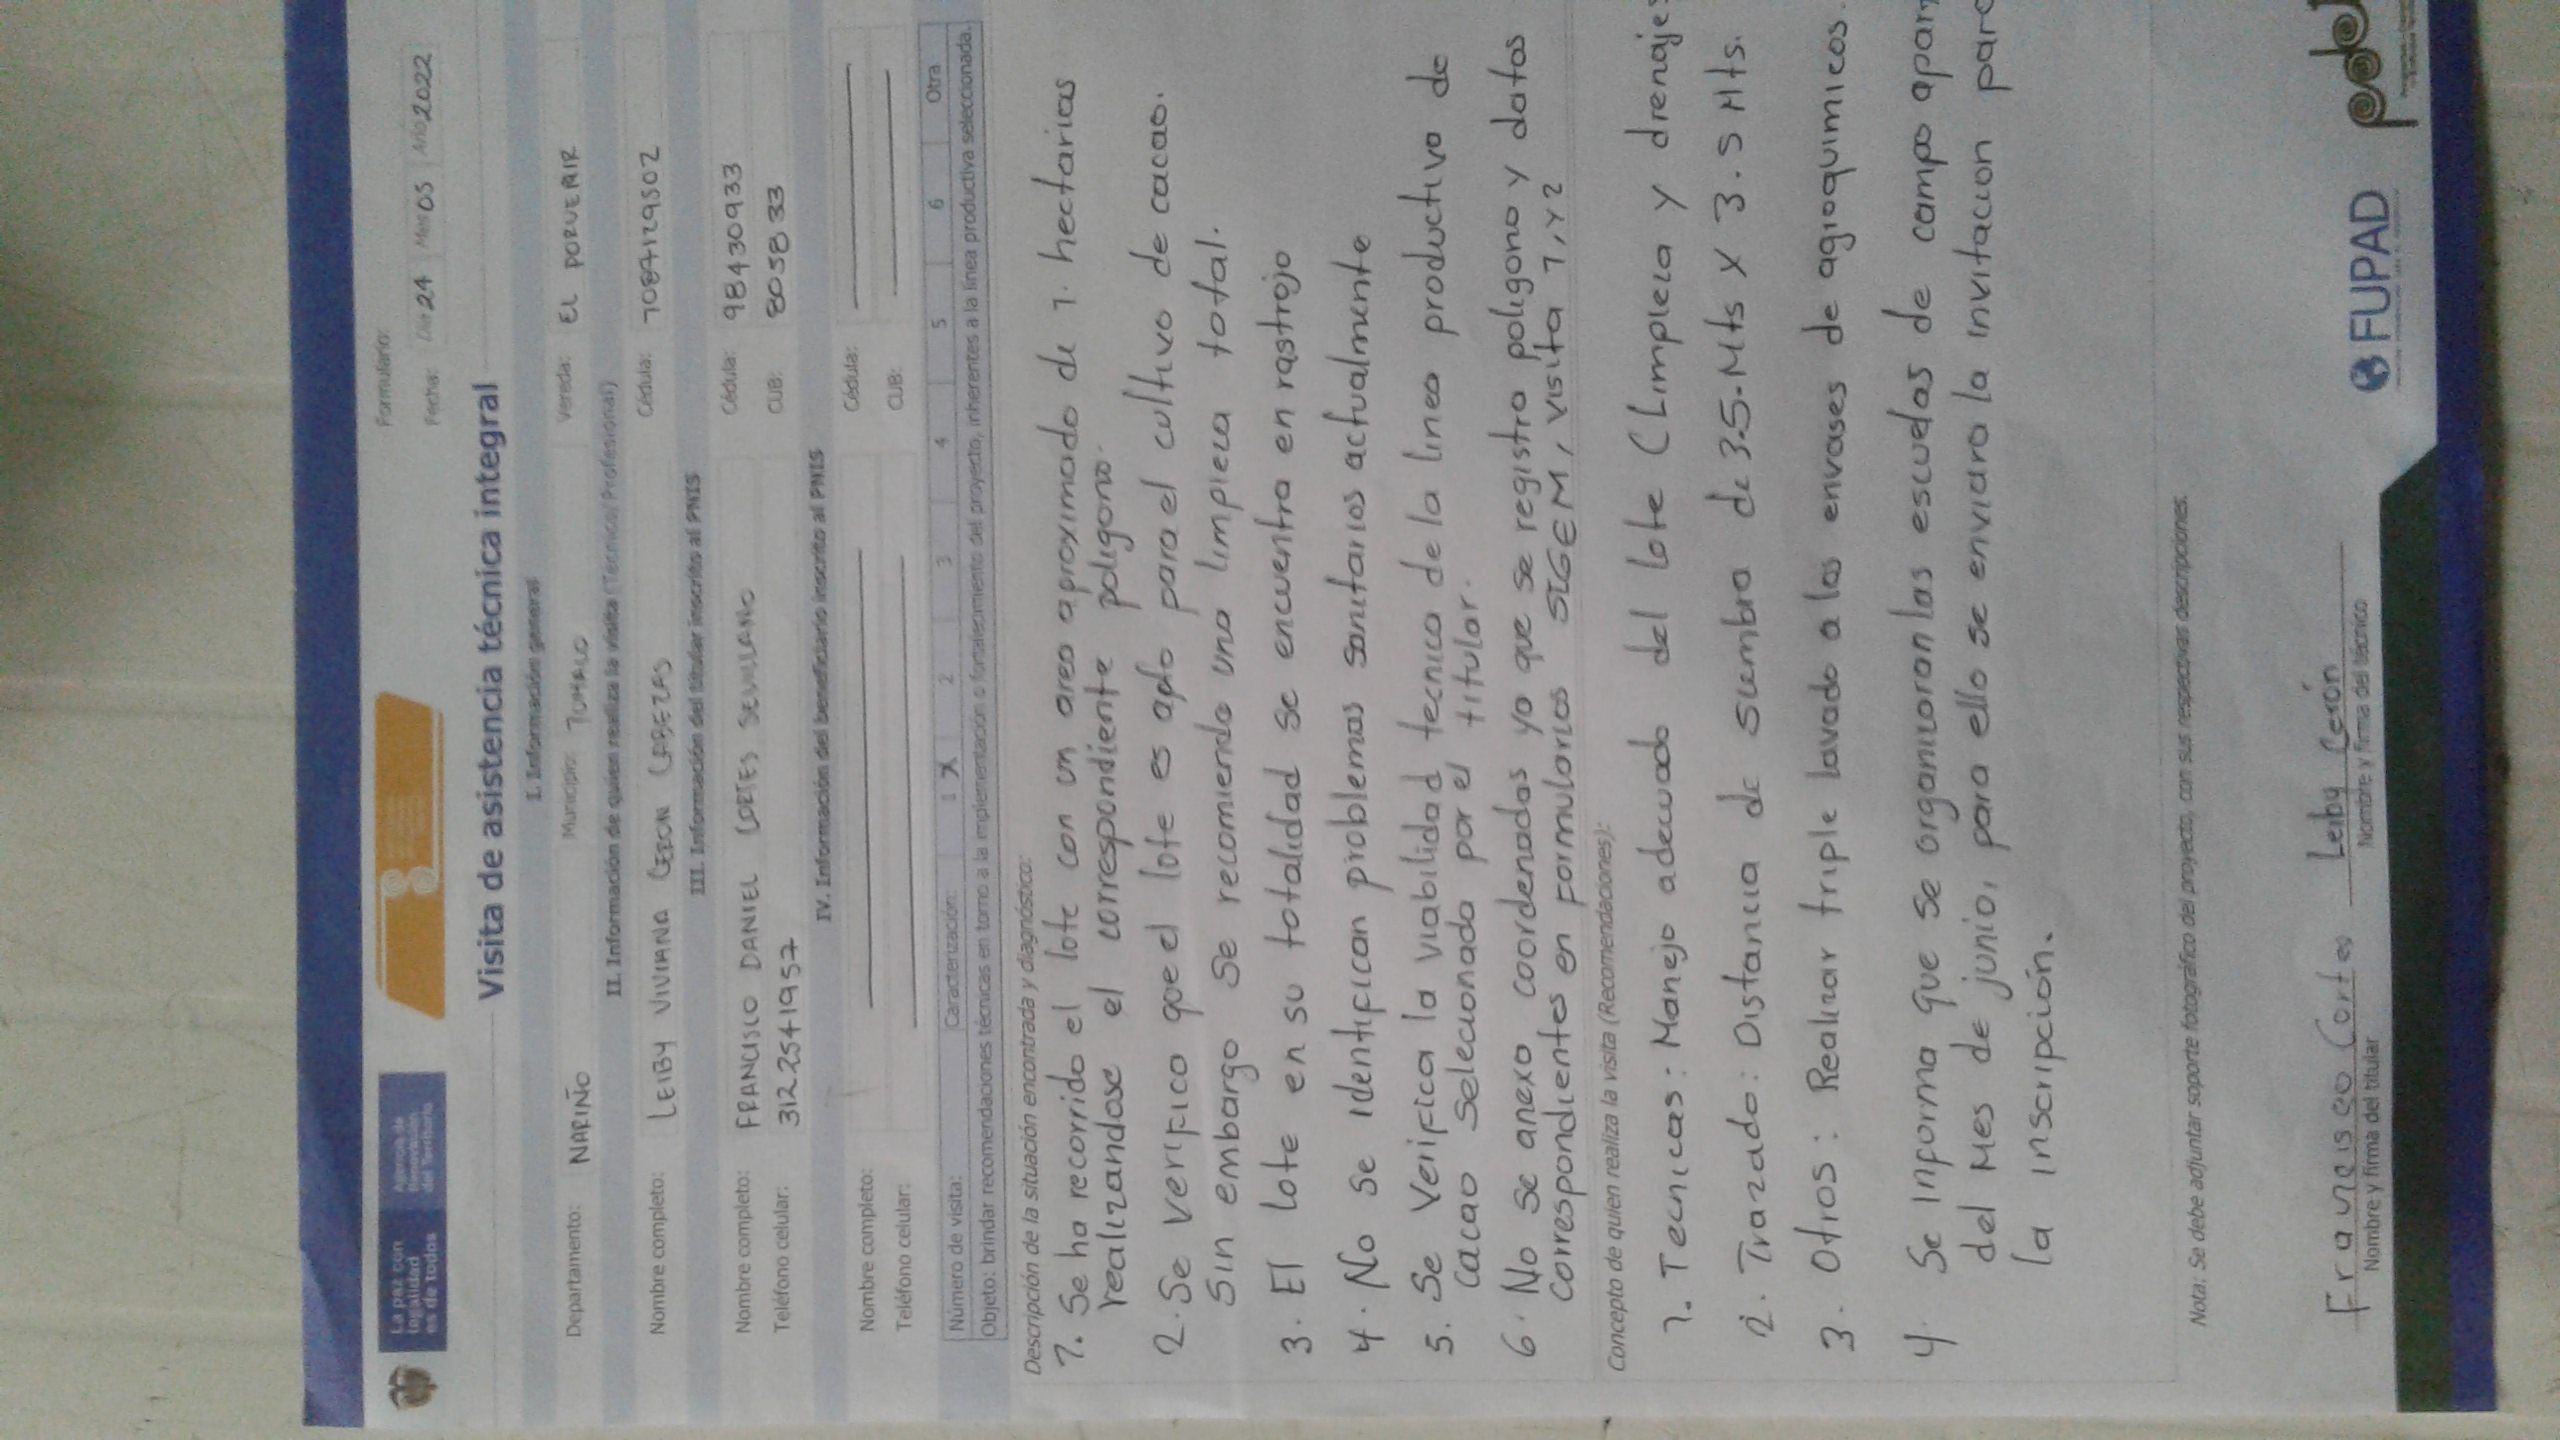 La paz con
legalidad
es de todos
Agencia de
Renovación
del Territorio
Formulario:
Fecha: Día 24 Mes 05 Año 2022
Visita de asistencia técnica integral
I. Información general
Departamento: NARIÑO Municipio: TUMACO Vereda: EL PORVENIR
II. Información de quien realiza la visita (Técnico/Profesional)
Nombre completo: LEIBY VIVIANA CERON CABEZAS Cédula: 1087129502
III. Información del titular inscrito al PNIS
Nombre completo: FRANCISCO DANIEL CORTES SEVILLANO Cédula: 98430933
Teléfono celular: 3122541957 CUB: 805833
IV. Información del beneficiario inscrito al PNIS
Nombre completo: Cédula:
Teléfono celular: CUB:
Número de visita: Caracterización: 1 X 2 3 4 5 6 Otra
Objeto: brindar recomendaciones técnicas en torno a la implementación o fortalecimiento del proyecto, inherentes a la línea productiva seleccionada.
Descripción de la situación encontrada y diagnóstico:
1. Se ha recorrido el lote con un area aproximado de 1. hectarias
realizandose el correspondiente poligono.
2. Se verifico que el lote es apto para el cultivo de cacao.
Sin embargo se recomienda una limpieza total.
3. El lote en su totalidad se encuentra en rastrojo
4. No se identifican problemas sanitarios actualmente
5. Se Verifica la viabilidad tecnica de la linea productiva de
cacao seleccionada por el titular.
6. No se anexa coordenadas ya que se registra poligono y datos
correspondientes en formularios SIGEM, visita 1, y 2
Concepto de quien realiza la visita (Recomendaciones):
1. Tecnicas: Manejo adecuado del lote (Limpieza y drenajes
2. Trazado: Distancia de siembra de 3.5. Mts X 3.5 Mts.
3. Otros: Realizar triple lavado a los envases de agroquimicos.
4. Se informa que se organizaran las escuelas de campo apartir
del mes de junio, para ello se enviara la invitacion para
la inscripción.
Nota: Se debe adjuntar soporte fotográfico del proyecto, con sus respectivas descripciones.
Francisco Cortes Leiby Cerón
Nombre y firma del titular Nombre y firma del técnico
FUPAD